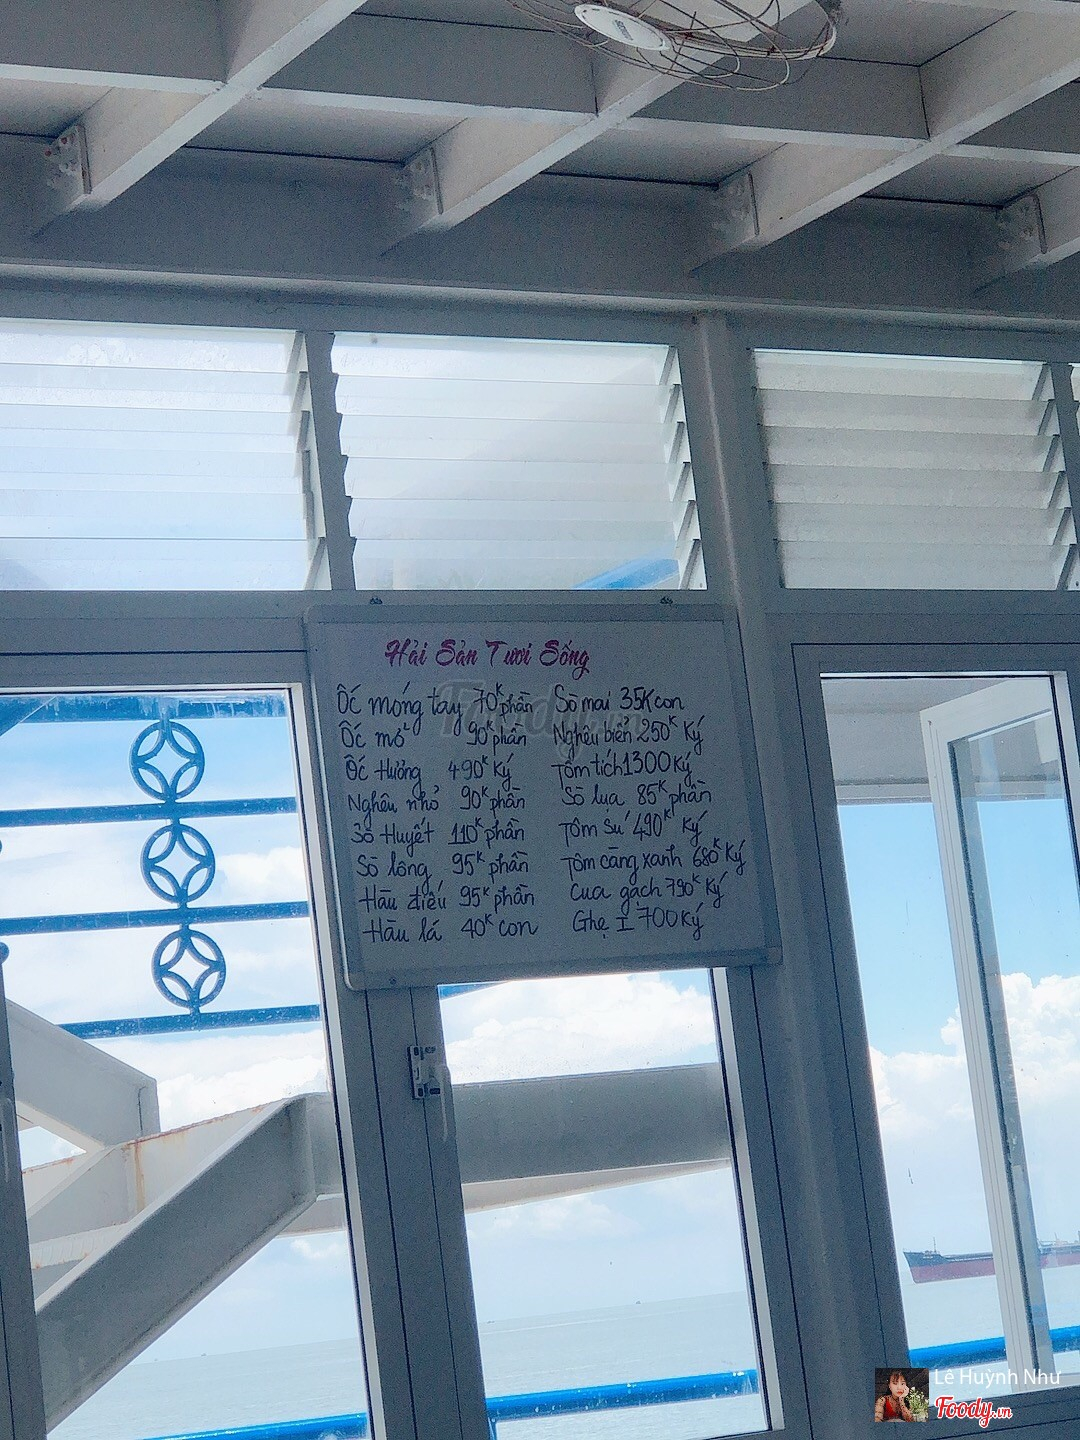 Hải Sản Tươi Sống
Ốc móng tay 70K phần
Ốc mỏ 90K phần
Ốc Hương 490K Ký
Nghêu nhỏ 90K phần
Sò Huyết 110K phần
Sò lông 95K phần
Hàu điếu 95K phần
Hàu lá 40K con
Sò mai 35K con
Nghêu biển 250K Ký
Tôm tích 1300 Ký
Sò lụa 85K phần
Tôm sú 490K Ký
Tôm càng xanh 680K Ký
Cua gạch 790K Ký
Ghẹ I 700 Ký
Foody.vn
Lê Huỳnh Như
Foody.vn